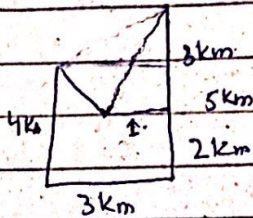 3km
5km
4k
1.
2km
3km